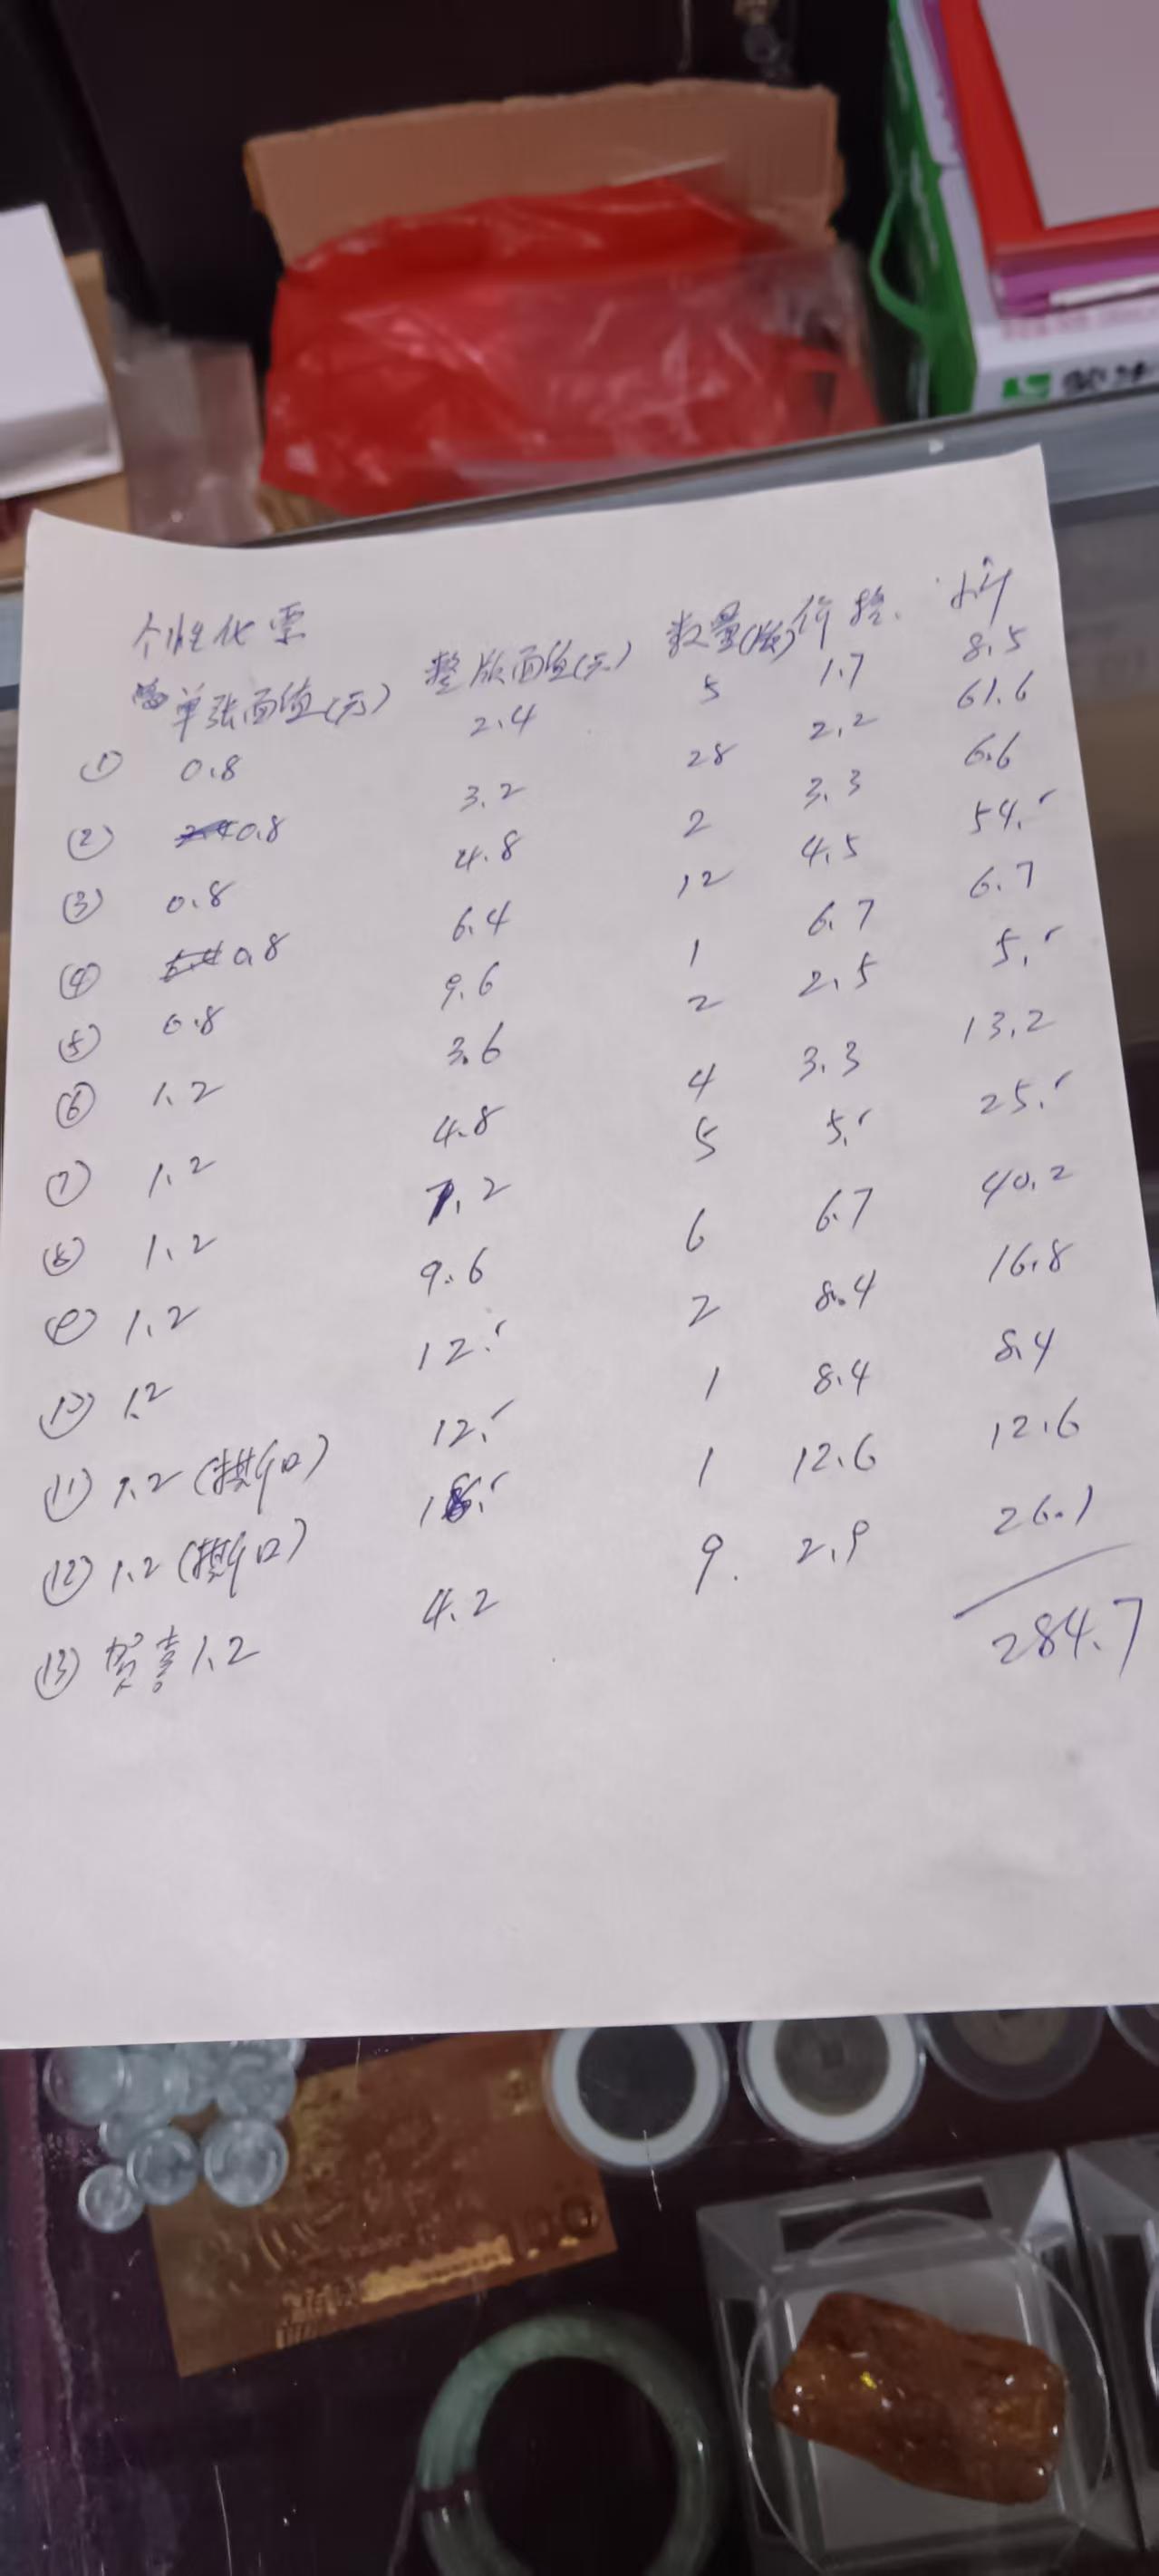 个性化票
单张面值(元) 整版面值(元) 数量(版) 价格. 小计
① 0.8 2.4 5 1.7 8.5
② 0.8 3.2 28 2.2 61.6
③ 0.8 4.8 2 3.3 6.6
④ 0.8 6.4 12 4.5 54.-
⑤ 0.8 9.6 1 6.7 6.7
⑥ 1.2 3.6 2 2.5 5.-
⑦ 1.2 4.8 4 3.3 13.2
⑧ 1.2 7.2 5 5.- 25.-
⑨ 1.2 9.6 6 6.7 40.2
⑩ 1.2 12.- 2 8.4 16.8
⑪ 1.2 12.- 1 8.4 8.4
⑫ 1.2 18.- 1 12.6 12.6
⑬ 贺喜1.2 4.2 9. 2.9 26.1
284.7